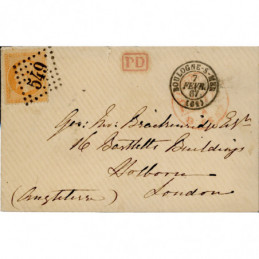 549
PD
BOULOGNE-S-MER
7
FEVR.
67
(61)
Geo: Jno: Brackenridge Esqre
16 Bartletts Buildings
Holborn
(Angleterre) London